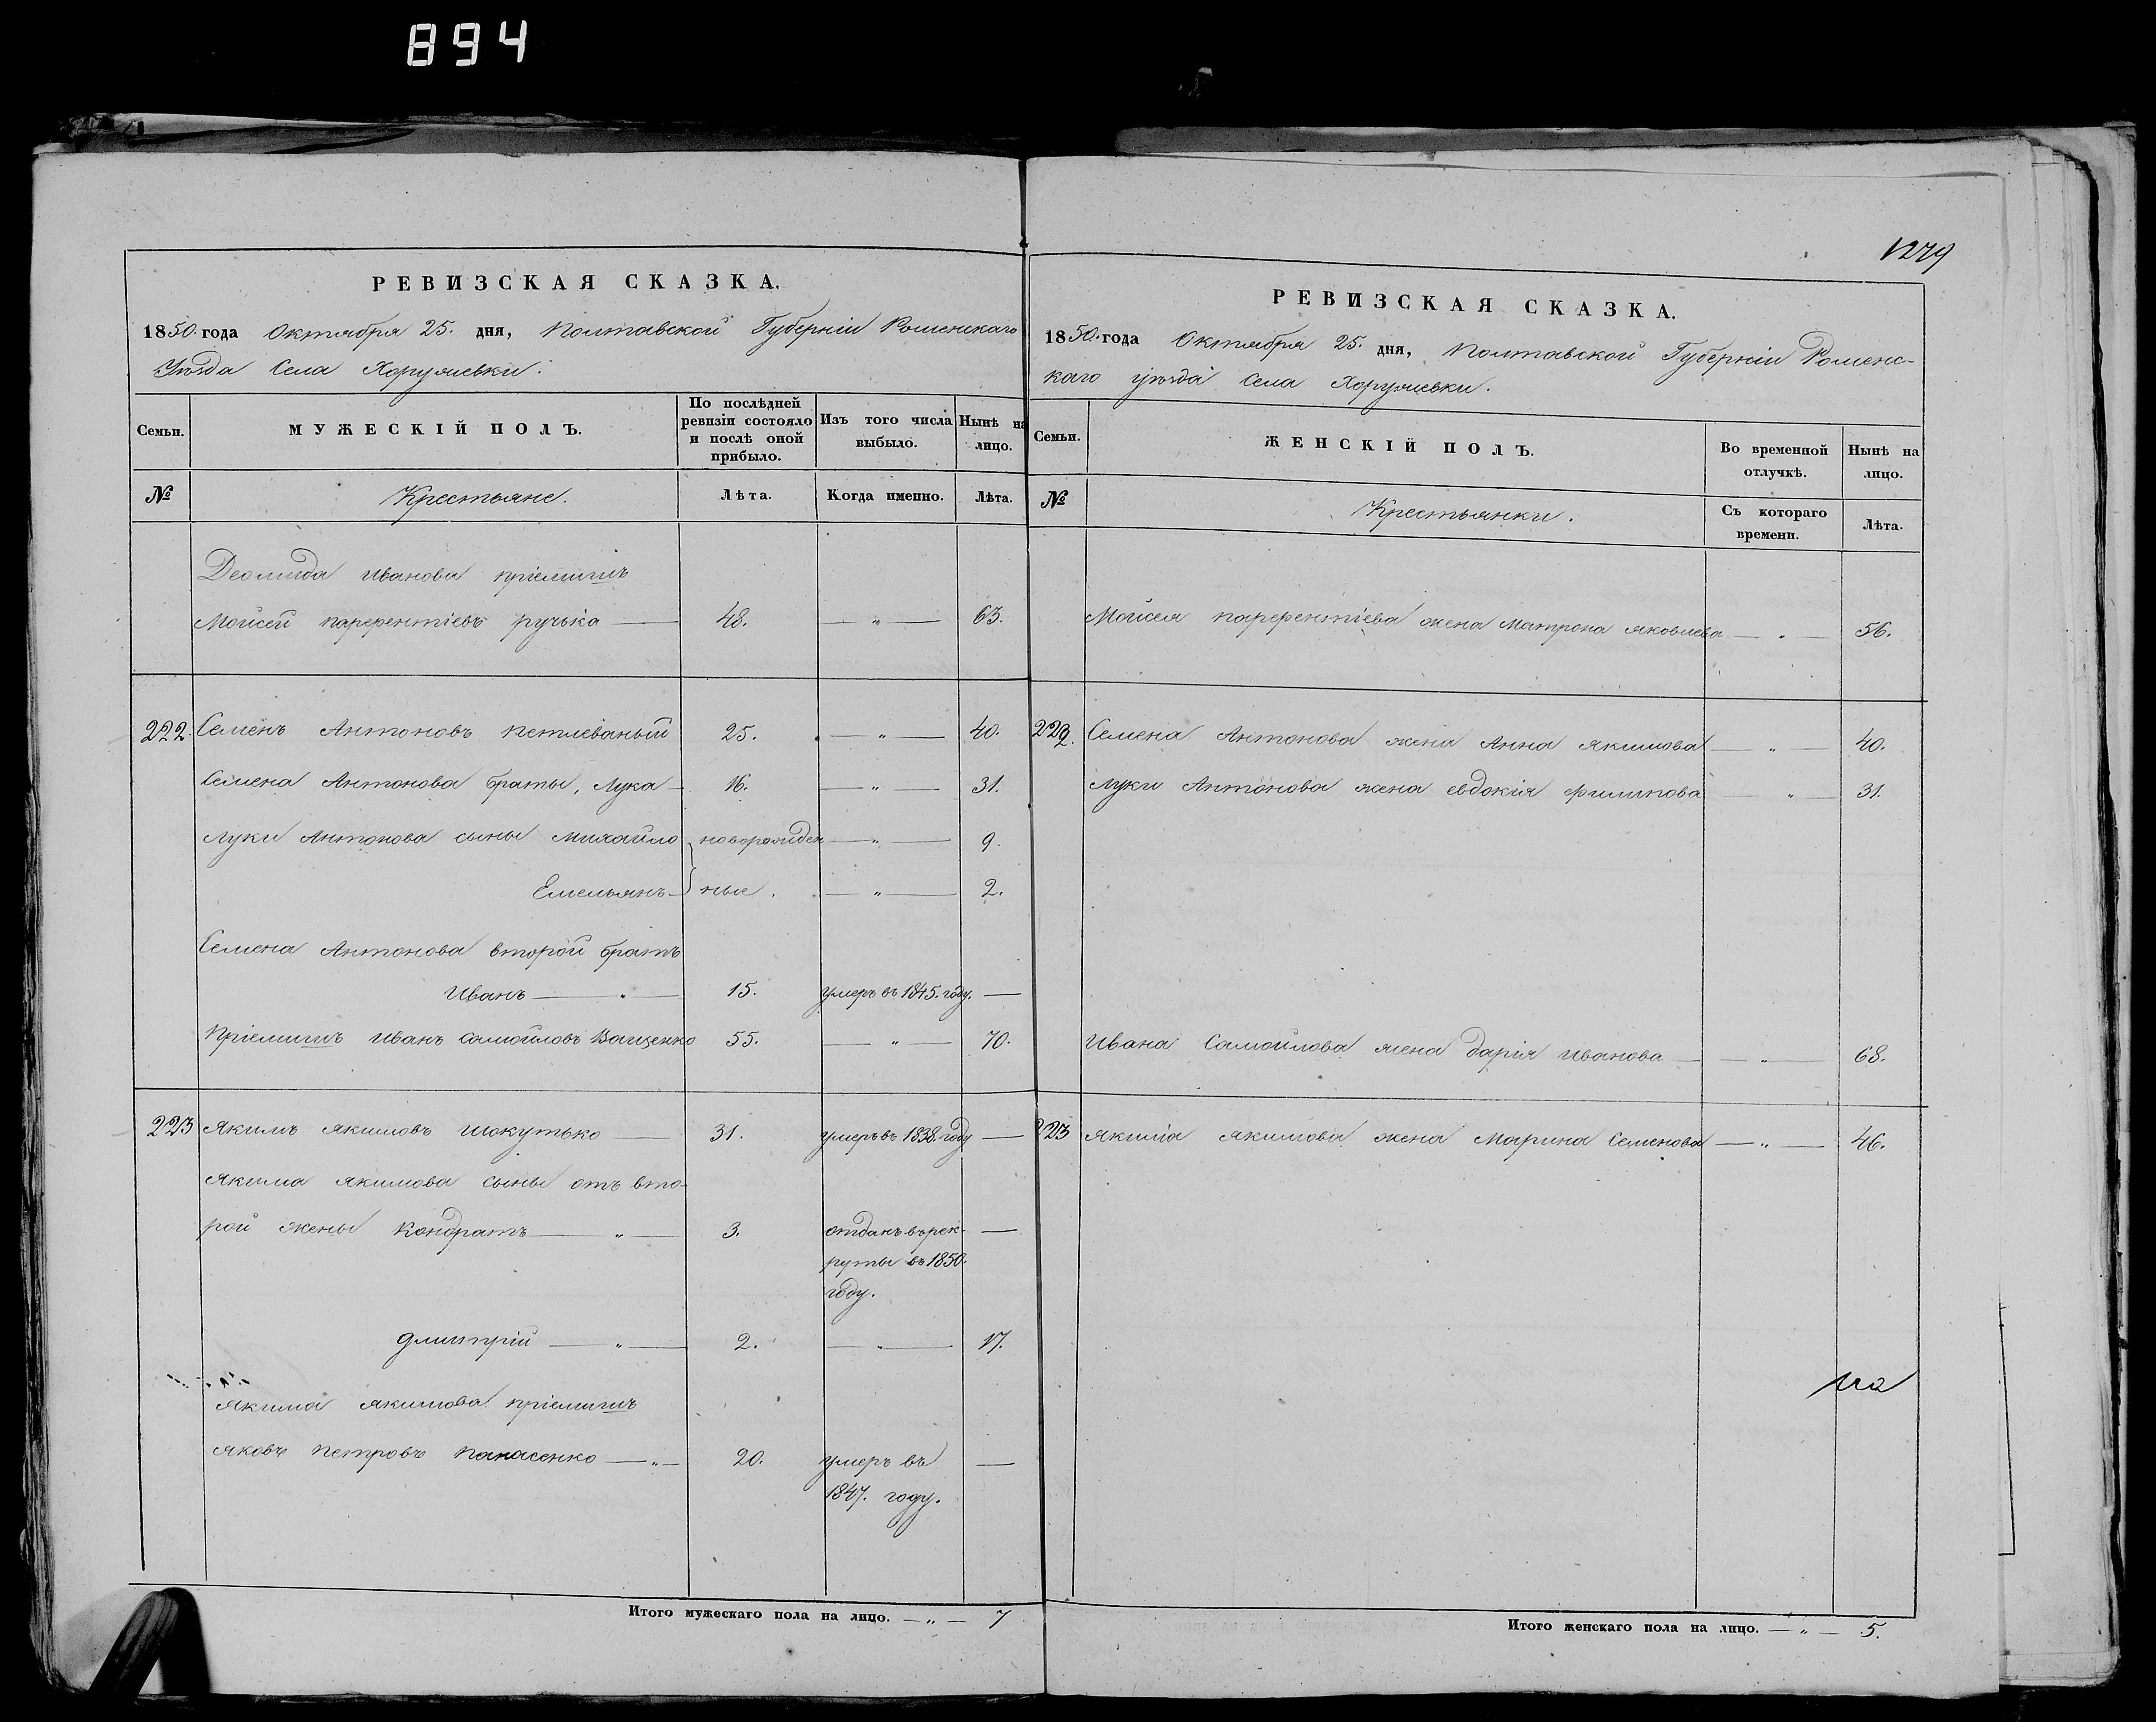 894
1279
РЕВИЗСКАЯ СКАЗКА.
1850. года Октября 25. дня, Полтавской Губерніи Роменскаго
Уѣзда Села Хоружевки.
Семьи.
МУЖЕСКІЙ ПОЛЪ.
По послѣдней ревизіи состояло и послѣ оной прибыло.
Изъ того числа выбыло.
Нынѣ на лицо.
№
Крестьяне.
Лѣта.
Когда именно.
Лѣта.
Деомида Иванова пріемышъ
Мойсей парфентіевъ ручька — 48. — „ — 63.
222. Семенъ Антоновъ петлеваный 25. — „ — 40.
Семена Антонова браты, Лука — 16. — „ — 31.
Луки Антонова сыны Михайло новорожден — „ — 9.
Емельянъ — ные. — „ — 2.
Семена Антонова второй братъ
Иванъ — 15. умеръ въ 1845. году. —
Пріемышъ Иванъ Самойловъ Ващенко 55. — „ — 70.
223 Якимъ Якимовъ Шокутько — 31. умеръ въ 1838. году —
Якима Якимова сыны отъ вто-
рой жены Кондратъ — „ — 3. отданъ въ рек- —
руты въ 1850.
году.
Дмитрій — „ — 2. — „ — 17.
Якима Якимова пріемышъ
Яковъ Петровъ Панасенко — „ — 20. умеръ въ —
1847. году.
Итого мужескаго пола на лицо. — „ — 7
РЕВИЗСКАЯ СКАЗКА.
1850. года Октября 25. дня, Полтавской Губерніи Роменс-
каго уѣзда Села Хоружевки.
Семьи.
ЖЕНСКІЙ ПОЛЪ.
Во временной отлучкѣ.
Нынѣ на лицо.
№
Крестьянки.
Съ котораго времени.
Лѣта.
Мойсея парфентіева жена Матрона Яковлева — „ — 56.
222. Семена Антонова жена Анна Якимова — „ — 40.
Луки Антонова жена Евдокія Филипова — „ — 31.
Ивана Самойлова жена Дарія Иванова — — „ — 68.
223 Якима Якимова жена Марина Семенова — „ — 46.
Итого женскаго пола на лицо. — „ — 5.